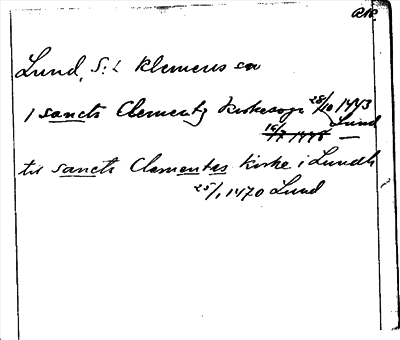 Lund, S:t Klemens sn
i sancts Clementz kirkesogn 28/10 1443
Lund
16/7 1445 —
til sancti Clementes kirke i Lundh
25/1 1470 Lund